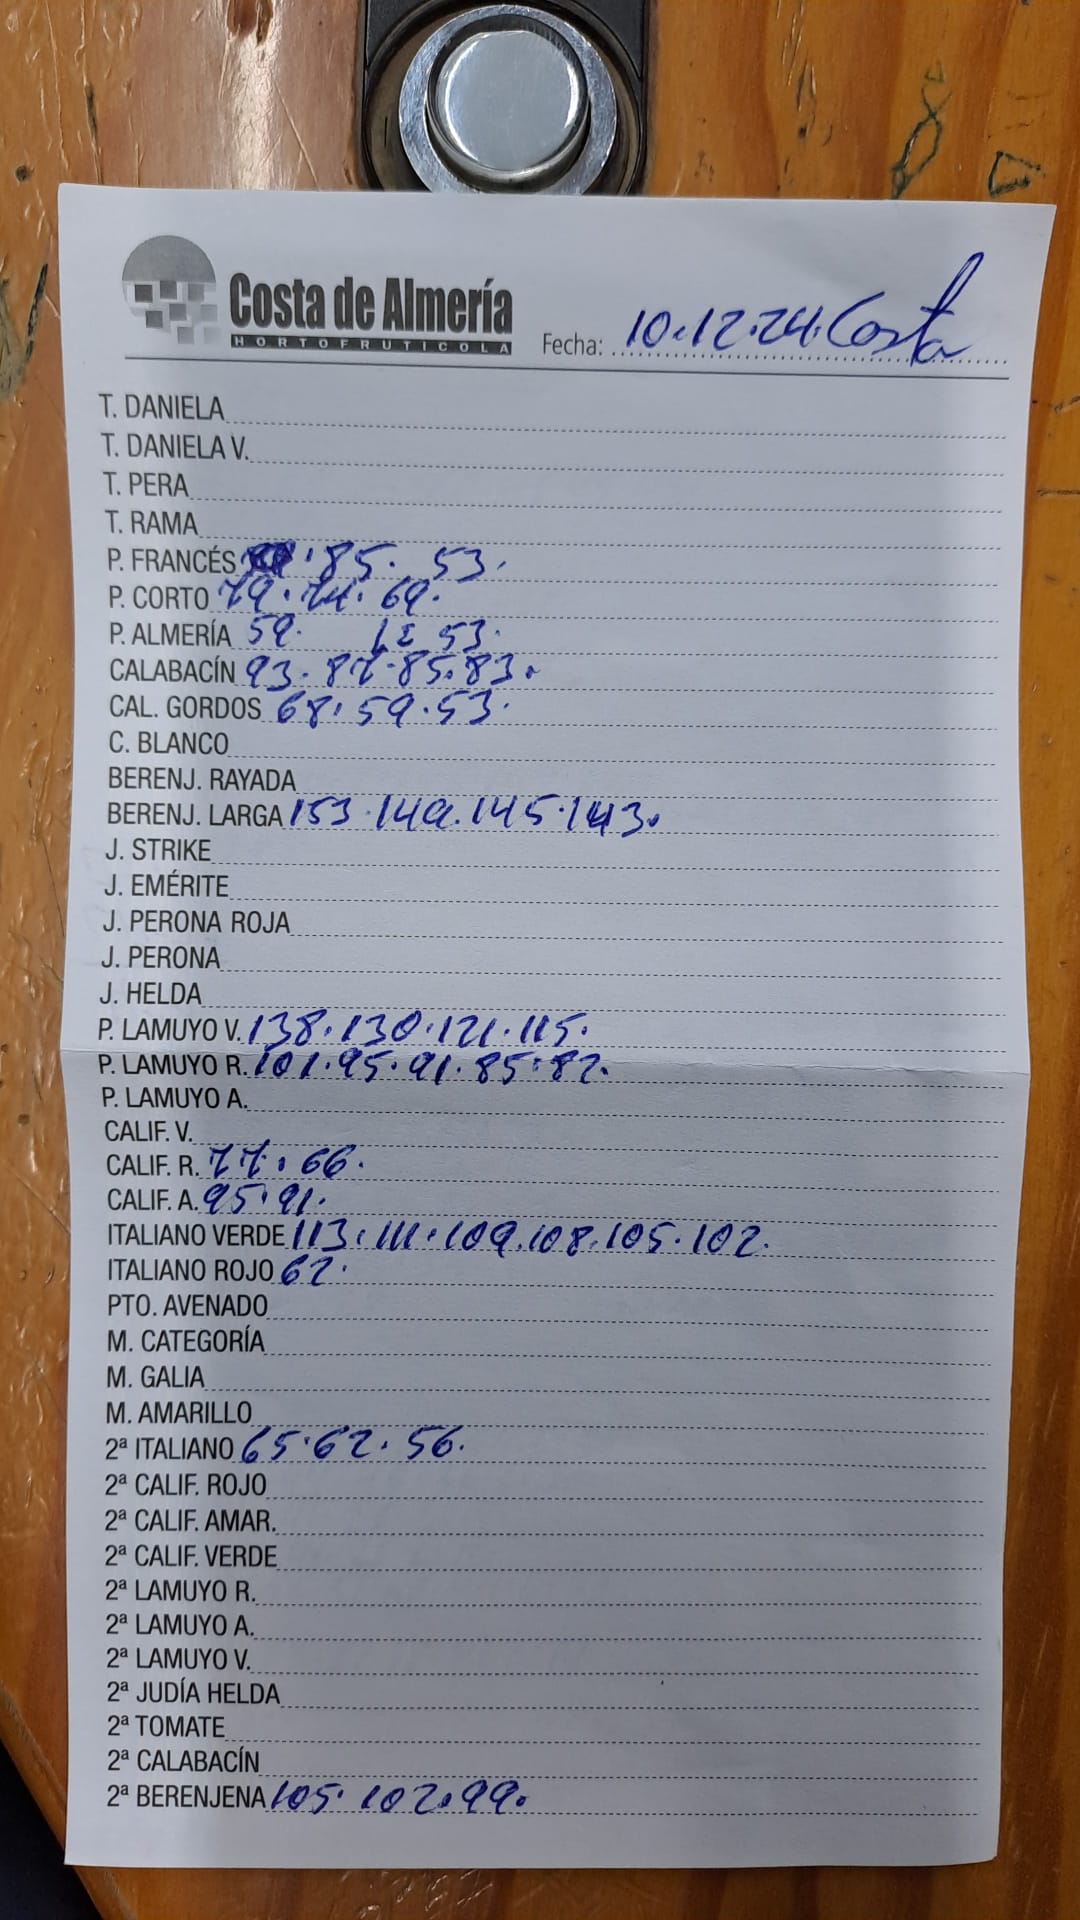 Costa de Almería
HORTOFRUTICOLA
Fecha: 10.12.24. Costa
T. DANIELA
T. DANIELA V.
T. PERA
T. RAMA
P. FRANCÉS . 85. 53.
P. CORTO 79. 74. 69.
P. ALMERÍA 59. LE 53.
CALABACÍN 93. 87. 85. 83.
CAL. GORDOS 68. 59. 53.
C. BLANCO
BERENJ. RAYADA
BERENJ. LARGA 153. 149. 145. 143.
J. STRIKE
J. EMÉRITE
J. PERONA ROJA
J. PERONA
J. HELDA
P. LAMUYO V. 138. 130. 121. 115.
P. LAMUYO R. 101. 95. 91. 85. 82.
P. LAMUYO A.
CALIF. V.
CALIF. R. 77. 66.
CALIF. A. 95. 91.
ITALIANO VERDE 113. 111. 109. 108. 105. 102.
ITALIANO ROJO 62.
PTO. AVENADO
M. CATEGORÍA
M. GALIA
M. AMARILLO
2ª ITALIANO 65. 62. 56.
2ª CALIF. ROJO
2ª CALIF. AMAR.
2ª CALIF. VERDE
2ª LAMUYO R.
2ª LAMUYO A.
2ª LAMUYO V.
2ª JUDÍA HELDA
2ª TOMATE
2ª CALABACÍN
2ª BERENJENA 105. 102. 99.